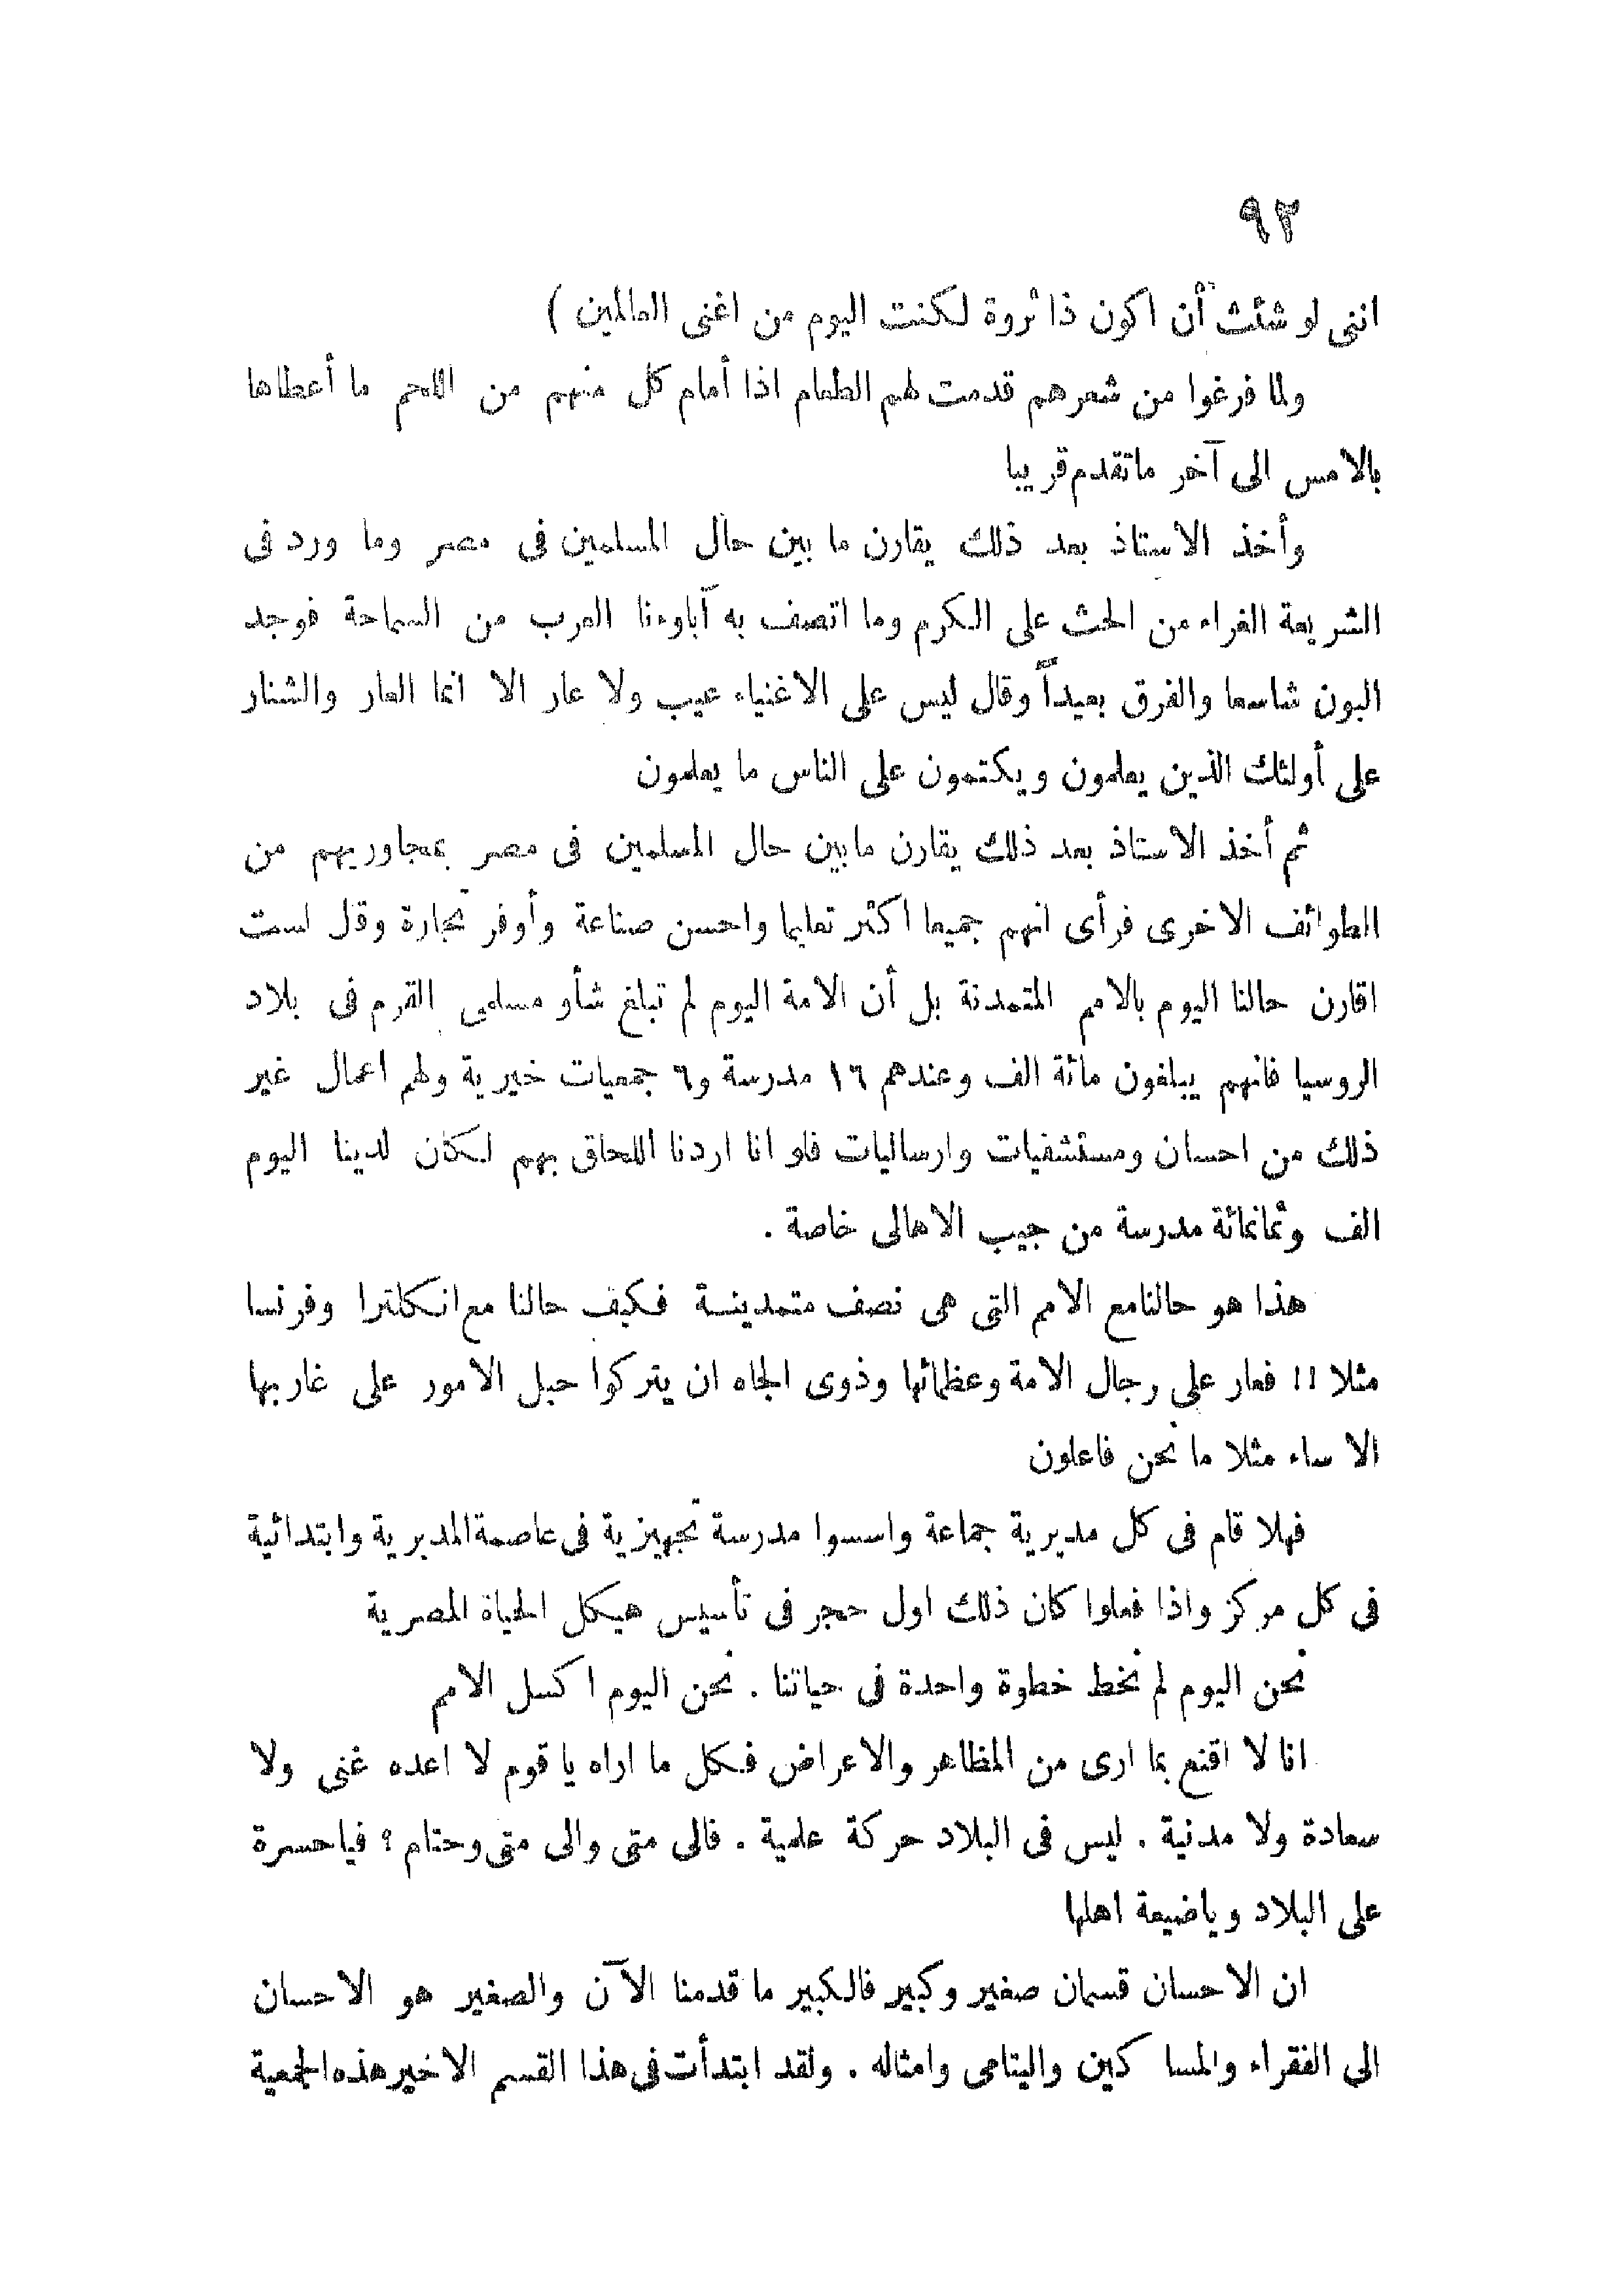 ٩٢
اننى لو شئت أن اكون ذا ثروة لكنت اليوم من اغنى العالمين )
ولما فرغوا من شعرهم قدمت لهم الطعام اذا أمام كل منهم من اللحم ما أعطاها
بالامس الى آخر ماتقدم قريبا
وأخذ الاستاذ بعد ذلك يقارن ما بين حال المسلمين فى مصر وما ورد فى
الشريعة الغراء من الحث على الكرم وما اتصف به آباوءنا العرب من السماحة فوجد
البون شاسعا والفرق بعيداً وقال ليس على الاغنياء عيب ولا عار الا انما العار والشنار
على أولئك الذين يعلمون ويكتمون على الناس ما يعلمون
ثم أخذ الاستاذ بعد ذلك يقارن مابين حال المسلمين فى مصر بمجاوريهم من
الطوائف الاخرى فرأى انهم جميعا اكثر تعليما واحسن صناعة وأوفر تجارة وقل لست
اقارن حالنا اليوم بالامم المتمدنة بل أن الامة اليوم لم تبلغ شأو مسلمى القرم فى بلاد
الروسيا فانهم يبلغون مائة الف وعندهم ١٦ مدرسة و٦ جمعيات خيرية ولهم اعمال غير
ذلك من احسان ومستشفيات وارساليات فلو انا اردنا اللحاق بهم لكان لدينا اليوم
الف وثمانمائة مدرسة من جيب الاهالى خاصة .
هذا هو حالنامع الامم التى هى نصف متمدينة فكيف حالنا مع انكلترا وفرنسا
مثلا !! فعار على رجال الامة وعظمائها وذوى الجاه ان يتركوا حبل الامور على غاربها
الا ساء مثلا ما نحن فاعلون
فهلا قام فى كل مديرية جماعة واسسوا مدرسة تجهيزية فى عاصمة المديرية وابتدائية
فى كل مركز واذا فعلوا كان ذلك اول حجر فى تأسيس هيكل الحياة المصرية
نحن اليوم لم نخط خطوة واحدة فى حياتنا . نحن اليوم اكسل الامم
انا لا اقنع بما ارى من المظاهر والاعراض فكل ما اراه يا قوم لا اعده غنى ولا
سعادة ولا مدنية . ليس فى البلاد حركة علمية . فالى متى والى متى وحتام ؟ فياحسرة
على البلاد وياضيعة اهلها
ان الاحسان قسمان صغير وكبير فالكبير ما قدمنا الآن والصغير هو الاحسان
الى الفقراء والمساكين واليتامى وامثاله . ولقد ابتدأت فى هذا القسم الاخير هذه الجمعية